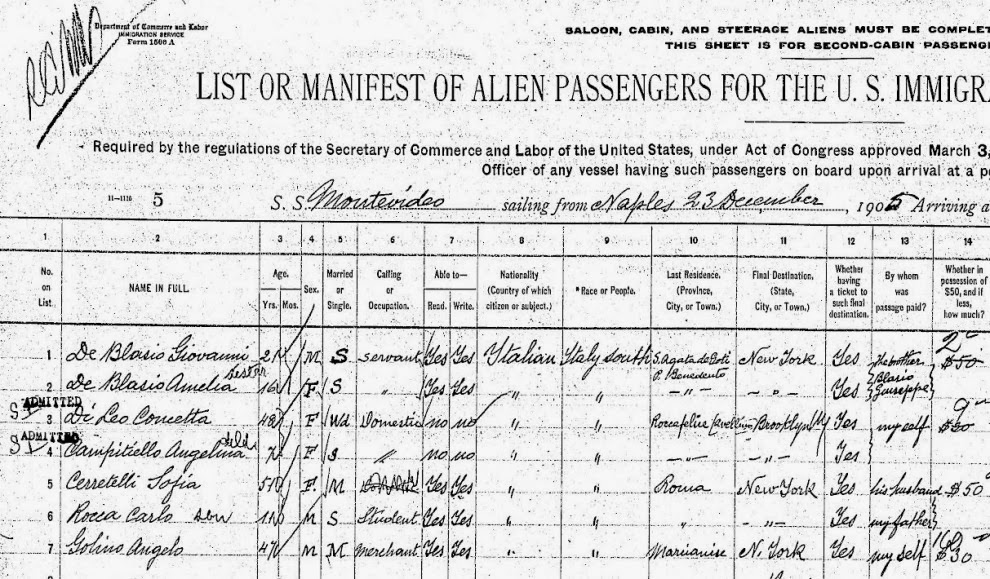 Department of Commerce and Labor
IMMIGRATION SERVICE
Form 1500 A
SALOON, CABIN, AND STEERAGE ALIENS MUST BE COMPLET
THIS SHEET IS FOR SECOND-CABIN PASSENG
LIST OR MANIFEST OF ALIEN PASSENGERS FOR THE U. S. IMMIGRA
Required by the regulations of the Secretary of Commerce and Labor of the United States, under Act of Congress approved March 3,
Officer of any vessel having such passengers on board upon arrival at a po
11-1116 5 S. S. Montevideo sailing from Naples 23 December, 1905 Arriving a
1 2 3 4 5 6 7 8 9 10 11 12 13 14
No. on List. NAME IN FULL. Age. Yrs. Mos. Sex. Married or Single. Calling or Occupation. Able to— Read. Write. Nationality (Country of which citizen or subject.) *Race or People. Last Residence. (Province, City, or Town.) Final Destination. (State, City, or Town.) Whether having a ticket to such final destination. By whom was passage paid? Whether in possession of $50, and if less, how much?
1 De Blasio Giovanni M S servant Yes Yes Italian Italy south S. Agata de Goti New York Yes $50
2 De Blasio Amelia 16 F S " Yes Yes " " P. Benedento " " Yes Blasio Giuseppe
ADMITTED
3 Di Leo Concetta F Wd Domestic no no " " Brooklyn Yes my self
ADMITTED
4 Campitiello Angelina F S " no no " " " " Yes
5 Cerretelli Sofia F. M Yes Yes " " Roma New York Yes his husband $50
6 Rocca Carlo son M S Student Yes Yes " " " " Yes my father
7 Golino Angelo M M merchant Yes Yes " " Marcianise N. York Yes my self $30